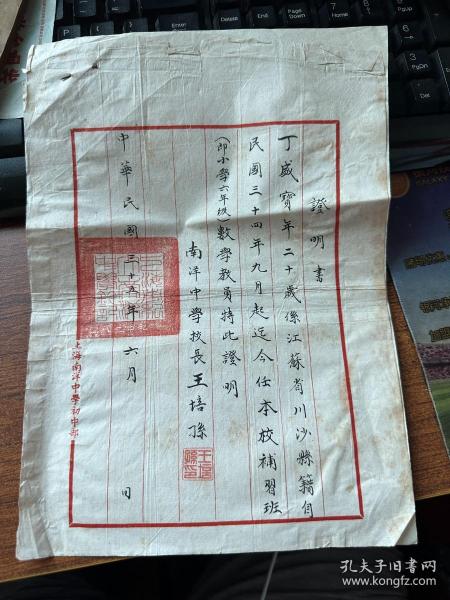 證明書
丁盛寶年二十歲係江蘇省川沙縣籍自
民國三十四年九月起迄今任本校補習班
(即小學六年级)數學教員特此證明
南洋中學校長王培孫
王培孫印
中華民國三十五年六月 日
上海南洋中學初中部
孔夫子旧书网
www.kongfz.com